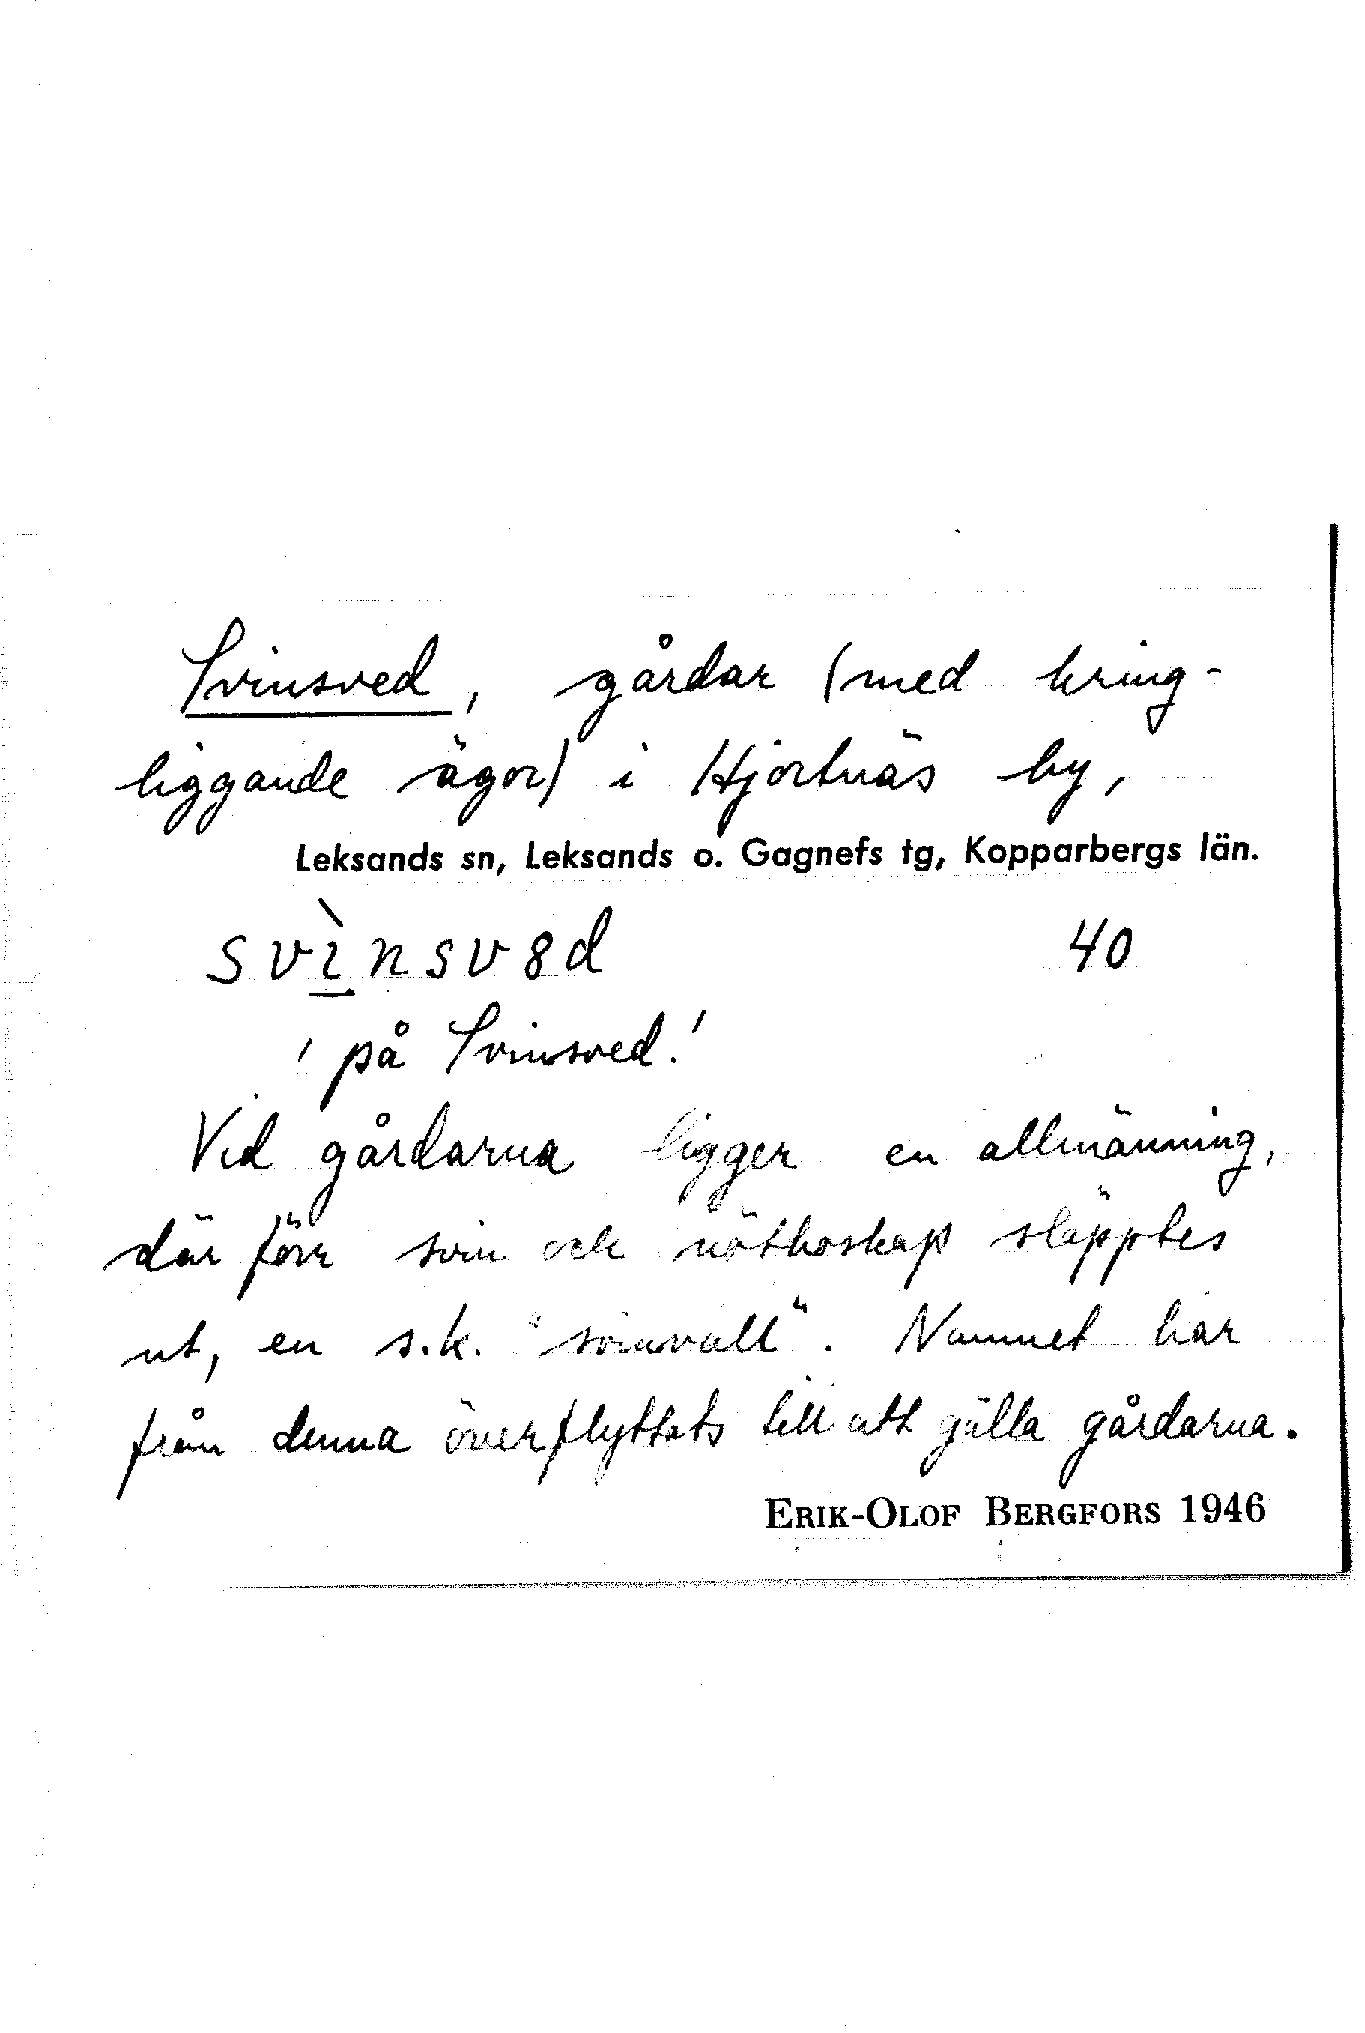 Svinsved, gårdar (med kring-
liggande ägor) i Hjortnäs by,
Leksands sn, Leksands o. Gagnefs tg, Kopparbergs län.
svìnsv8d 40
' på Svinsved.'
Vid gårdarna ligger en allmänning,
där förr svin och nötboskap släpptes
ut, en s.k. "svinvall". Namnet har
från denna överflyttats till att gälla gårdarna.
ERIK-OLOF BERGFORS 1946